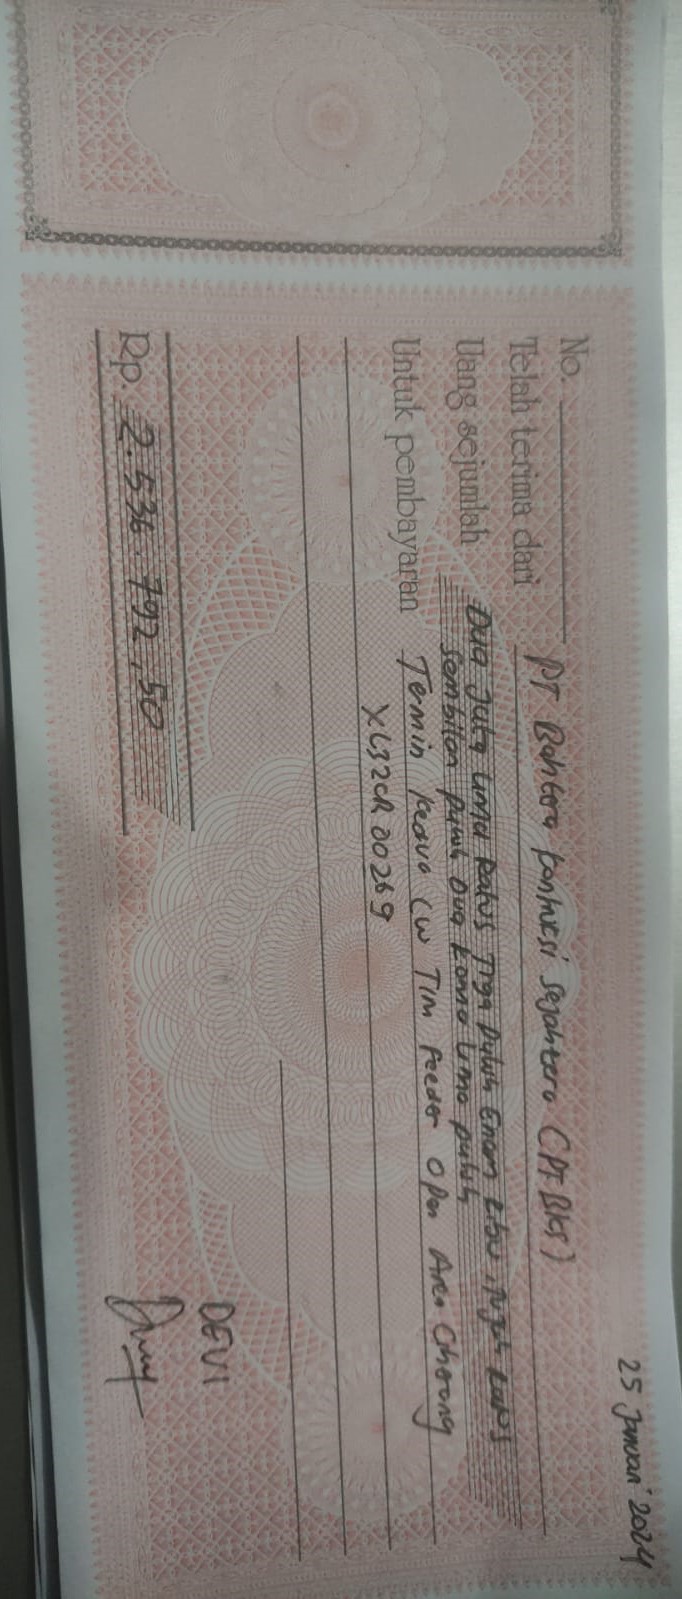 25 Januari 2024
No.
Telah terima dari PT Bahtera Kontruksi Sejahtera (PT BKS)
Uang sejumlah Dua Juta Lima Ratus Tiga Puluh Enam Ribu, Tujuh Ratus
Sembilan Puluh Dua Koma Lima puluh
Untuk pembayaran Termin Kedua CW TIM Feeder Open Area Ciherang
XL32CR00269
DEVI
Rp. 2.536.792,50